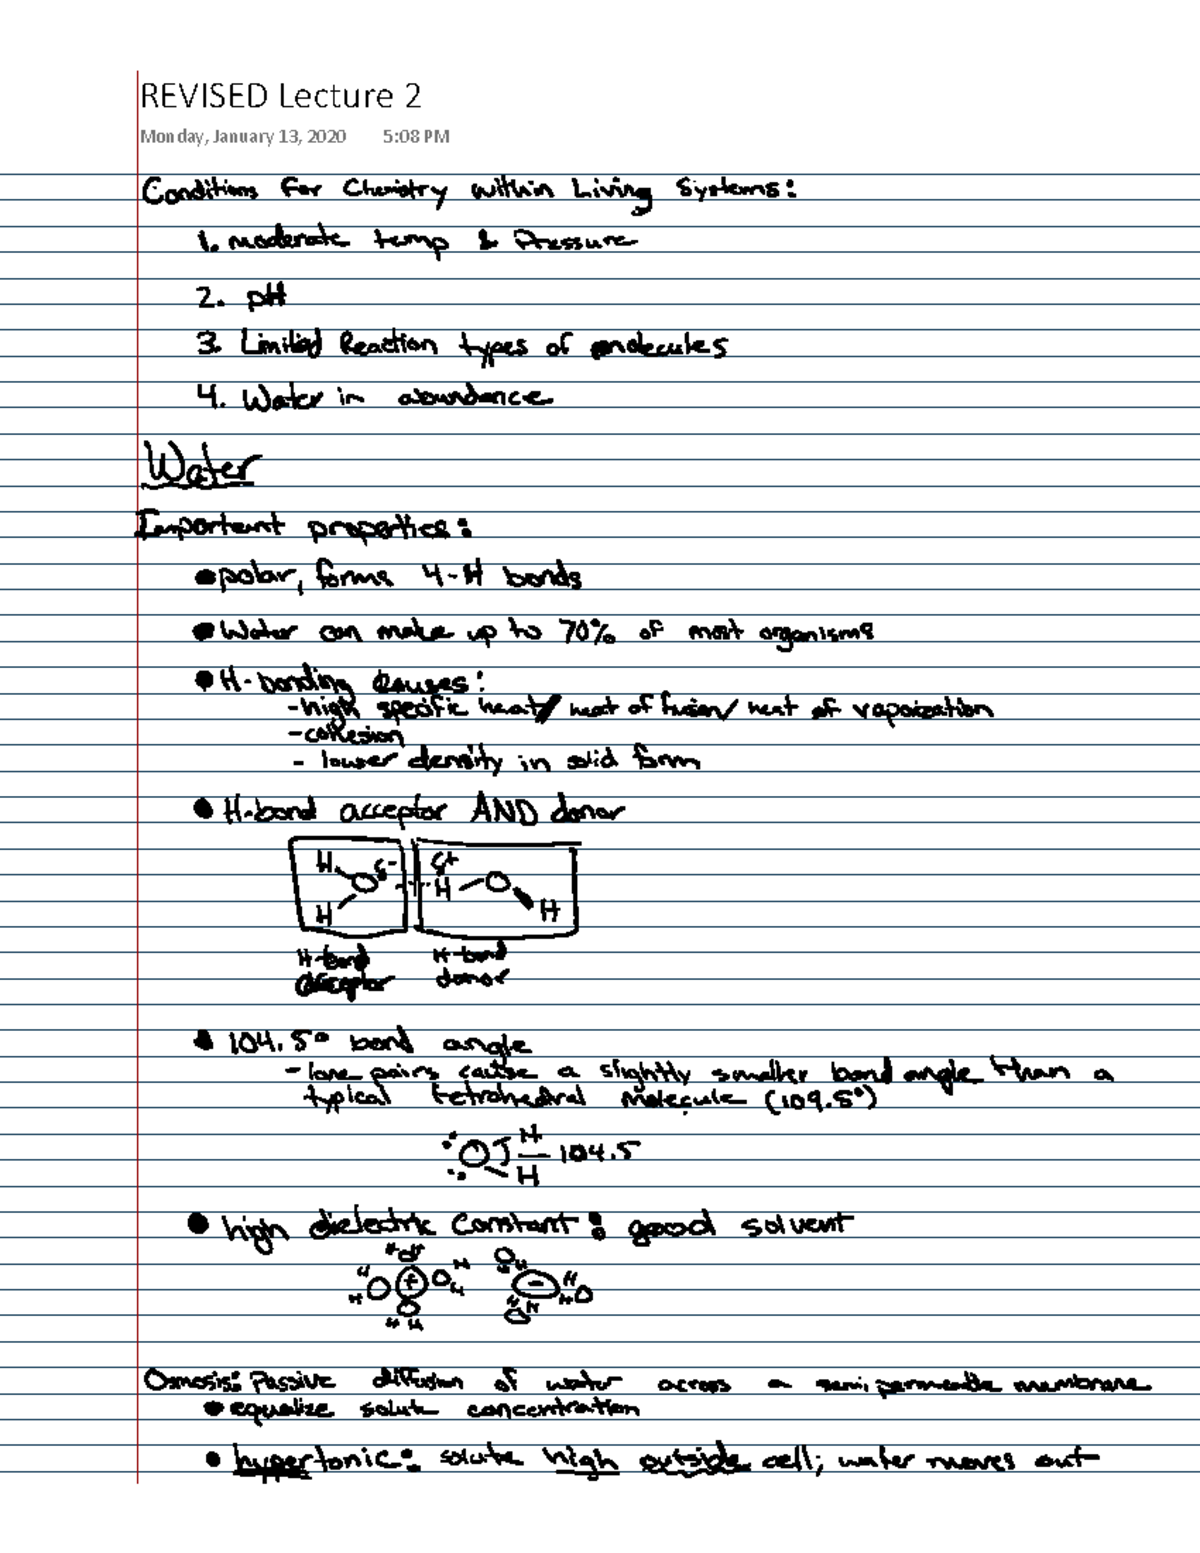 REVISED Lecture 2
Monday, January 13, 2020 5:08 PM
Conditions For Chemistry within Living Systems:
1. moderate temp & Pressure
2. pH
3. Limited Reaction types of molecules
4. Water in abundance
Water
Important properties:
• polar, forms 4-H bonds
• Water can make up to 70% of most organisms
• H-bonding causes:
- high specific heat/ heat of fusion/ heat of vaporization
- cohesion
- lower density in solid form
• H-bond acceptor AND donor
H δ- δ+
O H O
H H
H-bond H-bond
acceptor donor
• 104.5° bond angle
- lone pairs cause a slightly smaller bond angle than a
typical tetrahedral molecule (109.5°)
H
O 104.5
H
• high dielectric constant: good solvent
H O H H O H
H O + O H - H
H O H H O H H O
H H
Osmosis: Passive diffusion of water across a semi permeable membrane
• equalize solute concentration
• hypertonic: solute high outside cell; water moves out